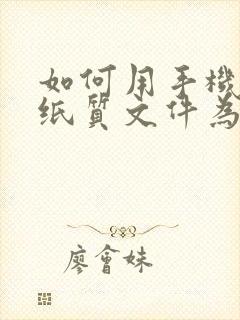 如何用手機
纸質文件為
廖會妹